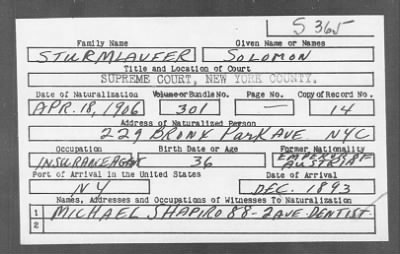 S 365
Family Name Given Name or Names
STURMLAUFER SOLOMON
Title and Location of Court
SUPREME COURT, NEW YORK COUNTY.
Date of Naturalization Volume or Bundle No. Page No. Copy of Record No.
APR. 18, 1906 301 — 14
Address of Naturalized Person
229 BRONX Park AVE NYC
Occupation Birth Date or Age Former Nationality
INSURANCE AGENT 36 EMPEROR OF AUSTRIA
Port of Arrival in the United States Date of Arrival
NY DEC. 1893
Names, Addresses and Occupations of Witnesses To Naturalization
1 MICHAEL SHAPIRO 88-2 AVE. DENTIST.
2